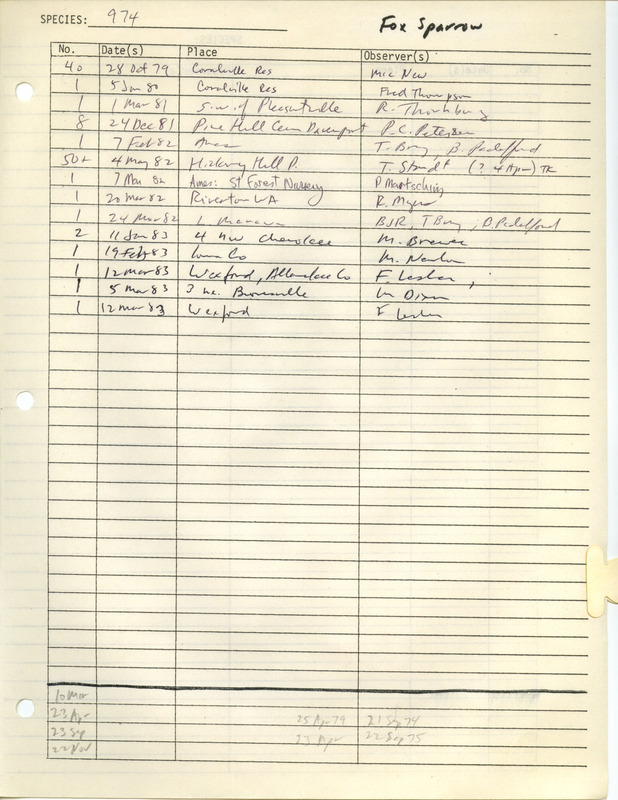 SPECIES: 974 Fox Sparrow
No. Date(s) Place Observer(s)
40 28 Oct 79 Coralville Res Mic New
1 5 Jan 80 Coralville Res Fred Thompson
1 1 Mar 81 S.W. of Pleasantville R. Thornburg
8 24 Dec 81 Pine Hill Cem Davenport P.C. Petersen
1 7 Feb 82 Ames T. Bray, B. Padelford
50+ 4 May 82 Hickory Hill P. T. Staudt (? 4 Apr) TK
1 7 Mar 82 Ames: St Forest Nursery P Martsching
1 20 Mar 82 Riverton WA R. Myers
1 24 Mar 82 L Manawa BJR, T Bray, D. Padelford
2 11 Jan 83 4 nw Cherokee M. Brewer
1 19 Feb 83 Iowa Co M. Newlon
1 12 Mar 83 Wexford, Allamakee Co F. Lesher,
1 5 Mar 83 3 Dixon
1 12 Mar 83 Wexford F Lesher
10 Mar
23 Apr 25 Apr 79 21 Sep 74
23 Sep 23 Apr 22 Sep 75
22 Nov